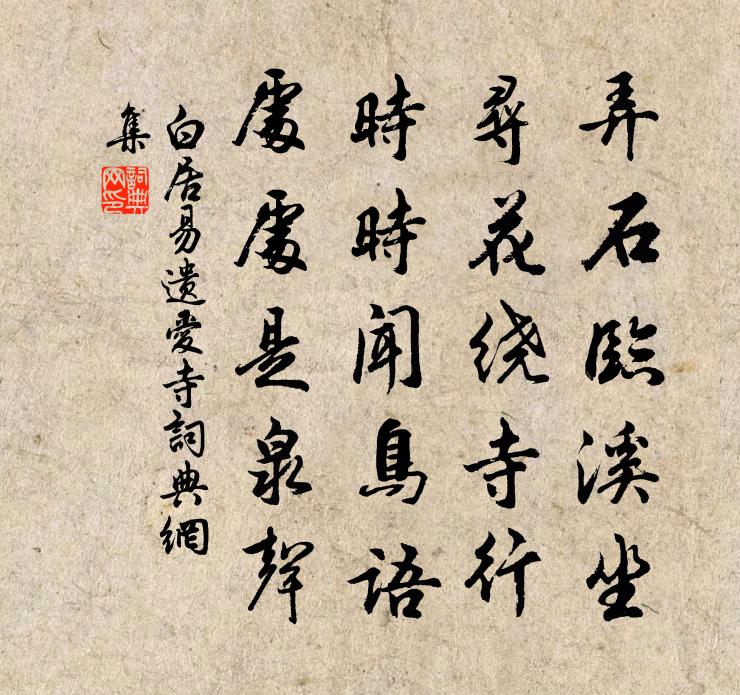 弄石臨溪坐
尋花绕寺行
時時闻鳥語
處處是泉聲
白居易遺愛寺詞典網
集
詞典
网印